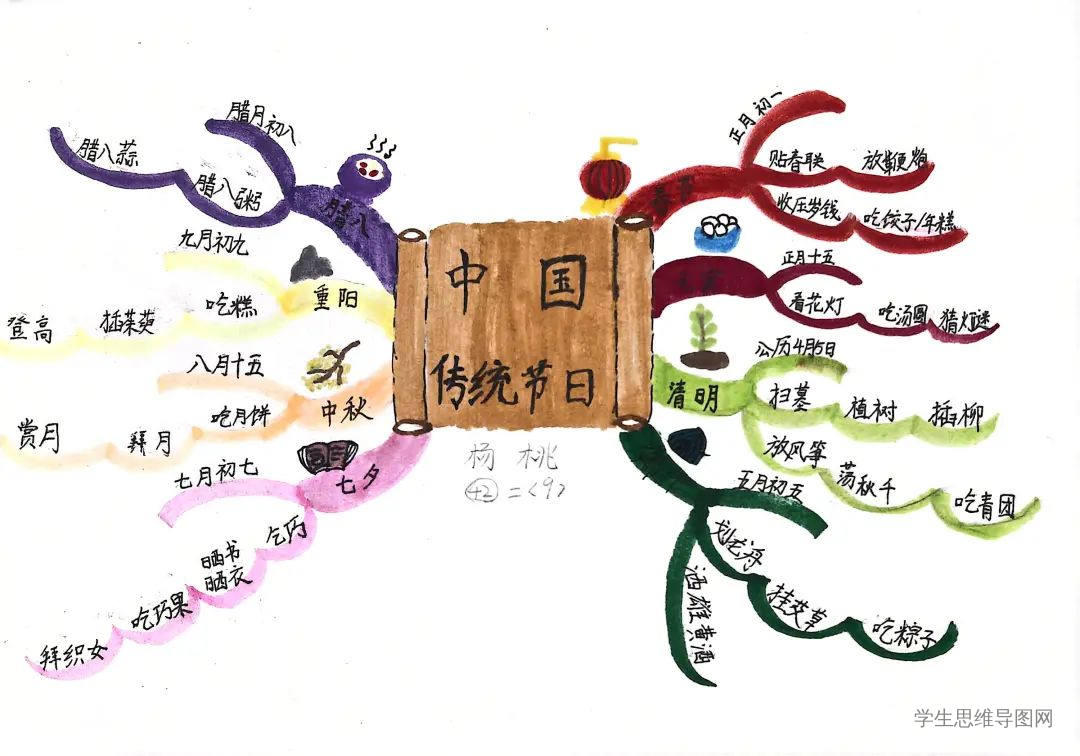 中国
传统节日
杨桃
42=<9>
春节
正月初一
贴春联
放鞭炮
收压岁钱
吃饺子/年糕
正月十五
看花灯
吃汤圆
猜灯谜
清明
公历4月5日
扫墓
植树
插柳
放风筝
荡秋千
吃青团
五月初五
划龙舟
挂艾草
吃粽子
洒雄黄酒
七夕
七月初七
乞巧
晒书
晒衣
吃巧果
拜织女
中秋
八月十五
吃月饼
拜月
赏月
重阳
九月初九
吃糕
插茱萸
登高
腊八
腊月初八
腊八粥
腊八蒜
学生思维导图网